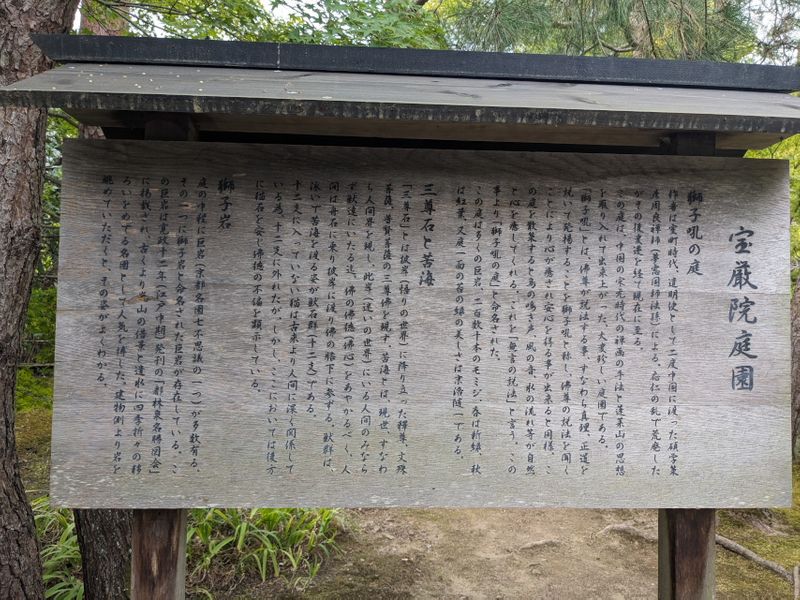 宝厳院庭園
獅子吼の庭
作者は室町時代、遣明使として二度中国に渡った碩学策
彦周良禅師(華僑国師法孫)による。応仁の乱で荒廃した
がその後復建を経て現在に至る。
この庭は、中国の宋元時代の禅画の手法と蓬莱山の思想
を取り入れて出来上がった、大変珍しい庭園である。
「獅子吼」とは、佛尊が説法する事、すなわち真理、正道を
説いて発揚することを獅子吼と称し、佛尊の説法を聞く
ことにより、心が癒され安心を得る事が出来ると同様、こ
の庭を散策すると鳥の鳴き声、風の音、水の流れ等が自然
と心を癒してくれる。これを「無言の説法」と言う。この
事より「獅子吼の庭」と命名された。
この庭は多くの巨岩、二百数十本のモミジ、春は新緑、秋
は紅葉、又庭一面の苔の緑の美しさは京洛随一である。
三尊石と苦海
「三尊石」とは彼岸(悟りの世界)に降り立った釋尊、文殊
菩薩、普賢菩薩の三尊佛を現す。苦海とは、現世、すなわ
ち人間界を現し、此岸(迷いの世界)にいる人間のみなら
ず獣達にいたる迄、佛の佛徳(佛心)をあやかるべく、人
間は舟石に乗り彼岸に渡り、佛の膝下に参ずる。獣群は、
泳いで苦海を渡る姿が獣石群(十二支)である。
十二支に入っていない猫は古来より人間に深く関係して
いる為、十二支に外れたが、しかし、ここにおいては後方
に猫石を安じ佛徳の不偏を顕示している。
獅子岩
庭の中程に巨岩(京都名園七不思議の一つ)が多数有る。
その一つに獅子岩と命名された巨岩が存在している。こ
の巨岩は寛政十一年(江戸中期)発刊の「都林泉名勝図会」
に掲載され、古くより嵐山の借景と達水に四季折々の移
ろいをめでる名園として人気を博した。建物側より岩を
眺めていただくと、その姿がよくわかる。